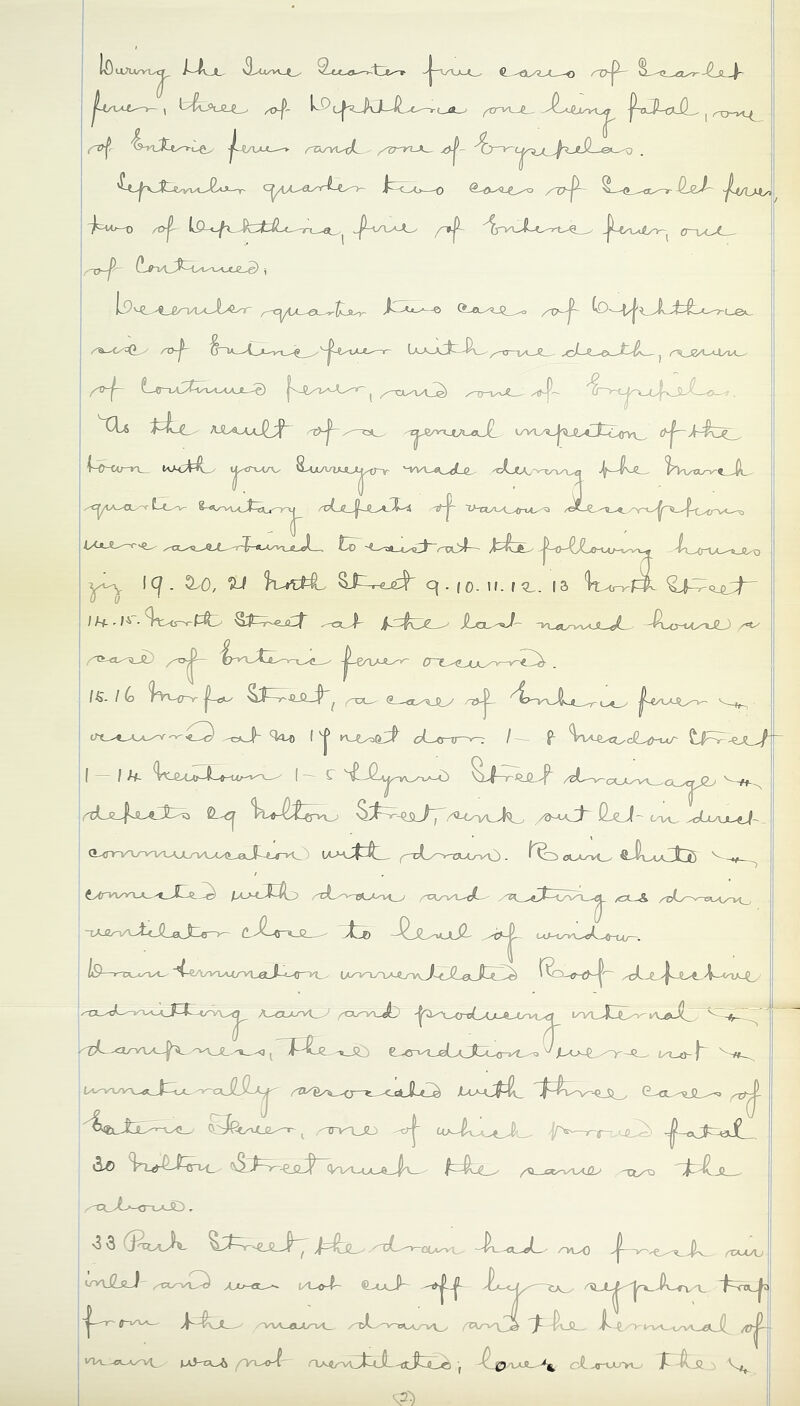 During the June Quarter five cases of Scarlet
fever, three of Diphtheria one being fatal, one
of Enteric fever and one of Erysipelas.
September quarter two cases of Scarlet fever,
two of Diphtheria, five of Enteric fever, one
of Continued,
December quarter two cases of Diphtheria
six of Enteric fever with one death, seven
of Continued fever, and one of Erysipelas.
As the result of a general inspection of the
town with your Surveyor made during the March
quarter sanitary defects of various descriptions
were ascertained to exist at the following houses
viz 19. 20, 21 North Street 9. 10. 11. 12. 13 North Street
14. 15. North Street at the last named house a
case of Enteric fever occurred.
15. 16 Morfa Street, a case of Enteric fever
occurred at No 17 next door. 1 - 8 Meadow Street
1 - 14 Newtown 1 - Llynvi Street drainage
defects 29 Nolton Street, sink out let in direct
communication with drain. Rain chute
connected with drain and acting as drain
ventilator close to level of window.
Drain termination unventilated Roof defective
admitting rain and producing internal
dampness, These conditions were not
unnaturally associated with three cases of
Enteric Fever, one of which proved fatal
30 Nolton Street much the same as the
above.
33 Park Street, the drain had no fresh air
inlet and was not cut off by a syphon trap
from the main drain and the terminal of
main was not ventilated, lower down the
(2)